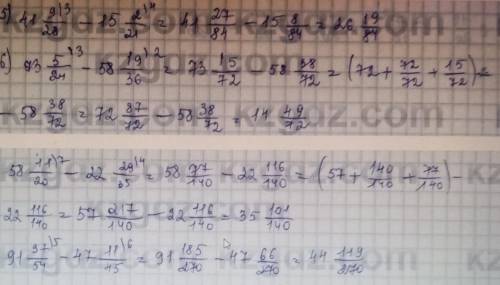 5) 41 9/28 \3 − 15 2/21 \4 = 41 27/84 − 15 8/84 = 26 19/84
6) 73 5/24 \3 − 58 19/36 \2 = 73 15/72 − 58 38/72 = (72 + 72/72 + 15/72) −
− 58 38/72 = 72 87/72 − 58 38/72 = 14 49/72
58 11/20 \7 − 22 29/35 \4 = 58 77/140 − 22 116/140 = (57 + 140/140 + 77/140) −
22 116/140 = 57 217/140 − 22 116/140 = 35 101/140
91 37/54 \5 − 47 11/45 \6 = 91 185/270 − 47 66/270 = 44 119/270